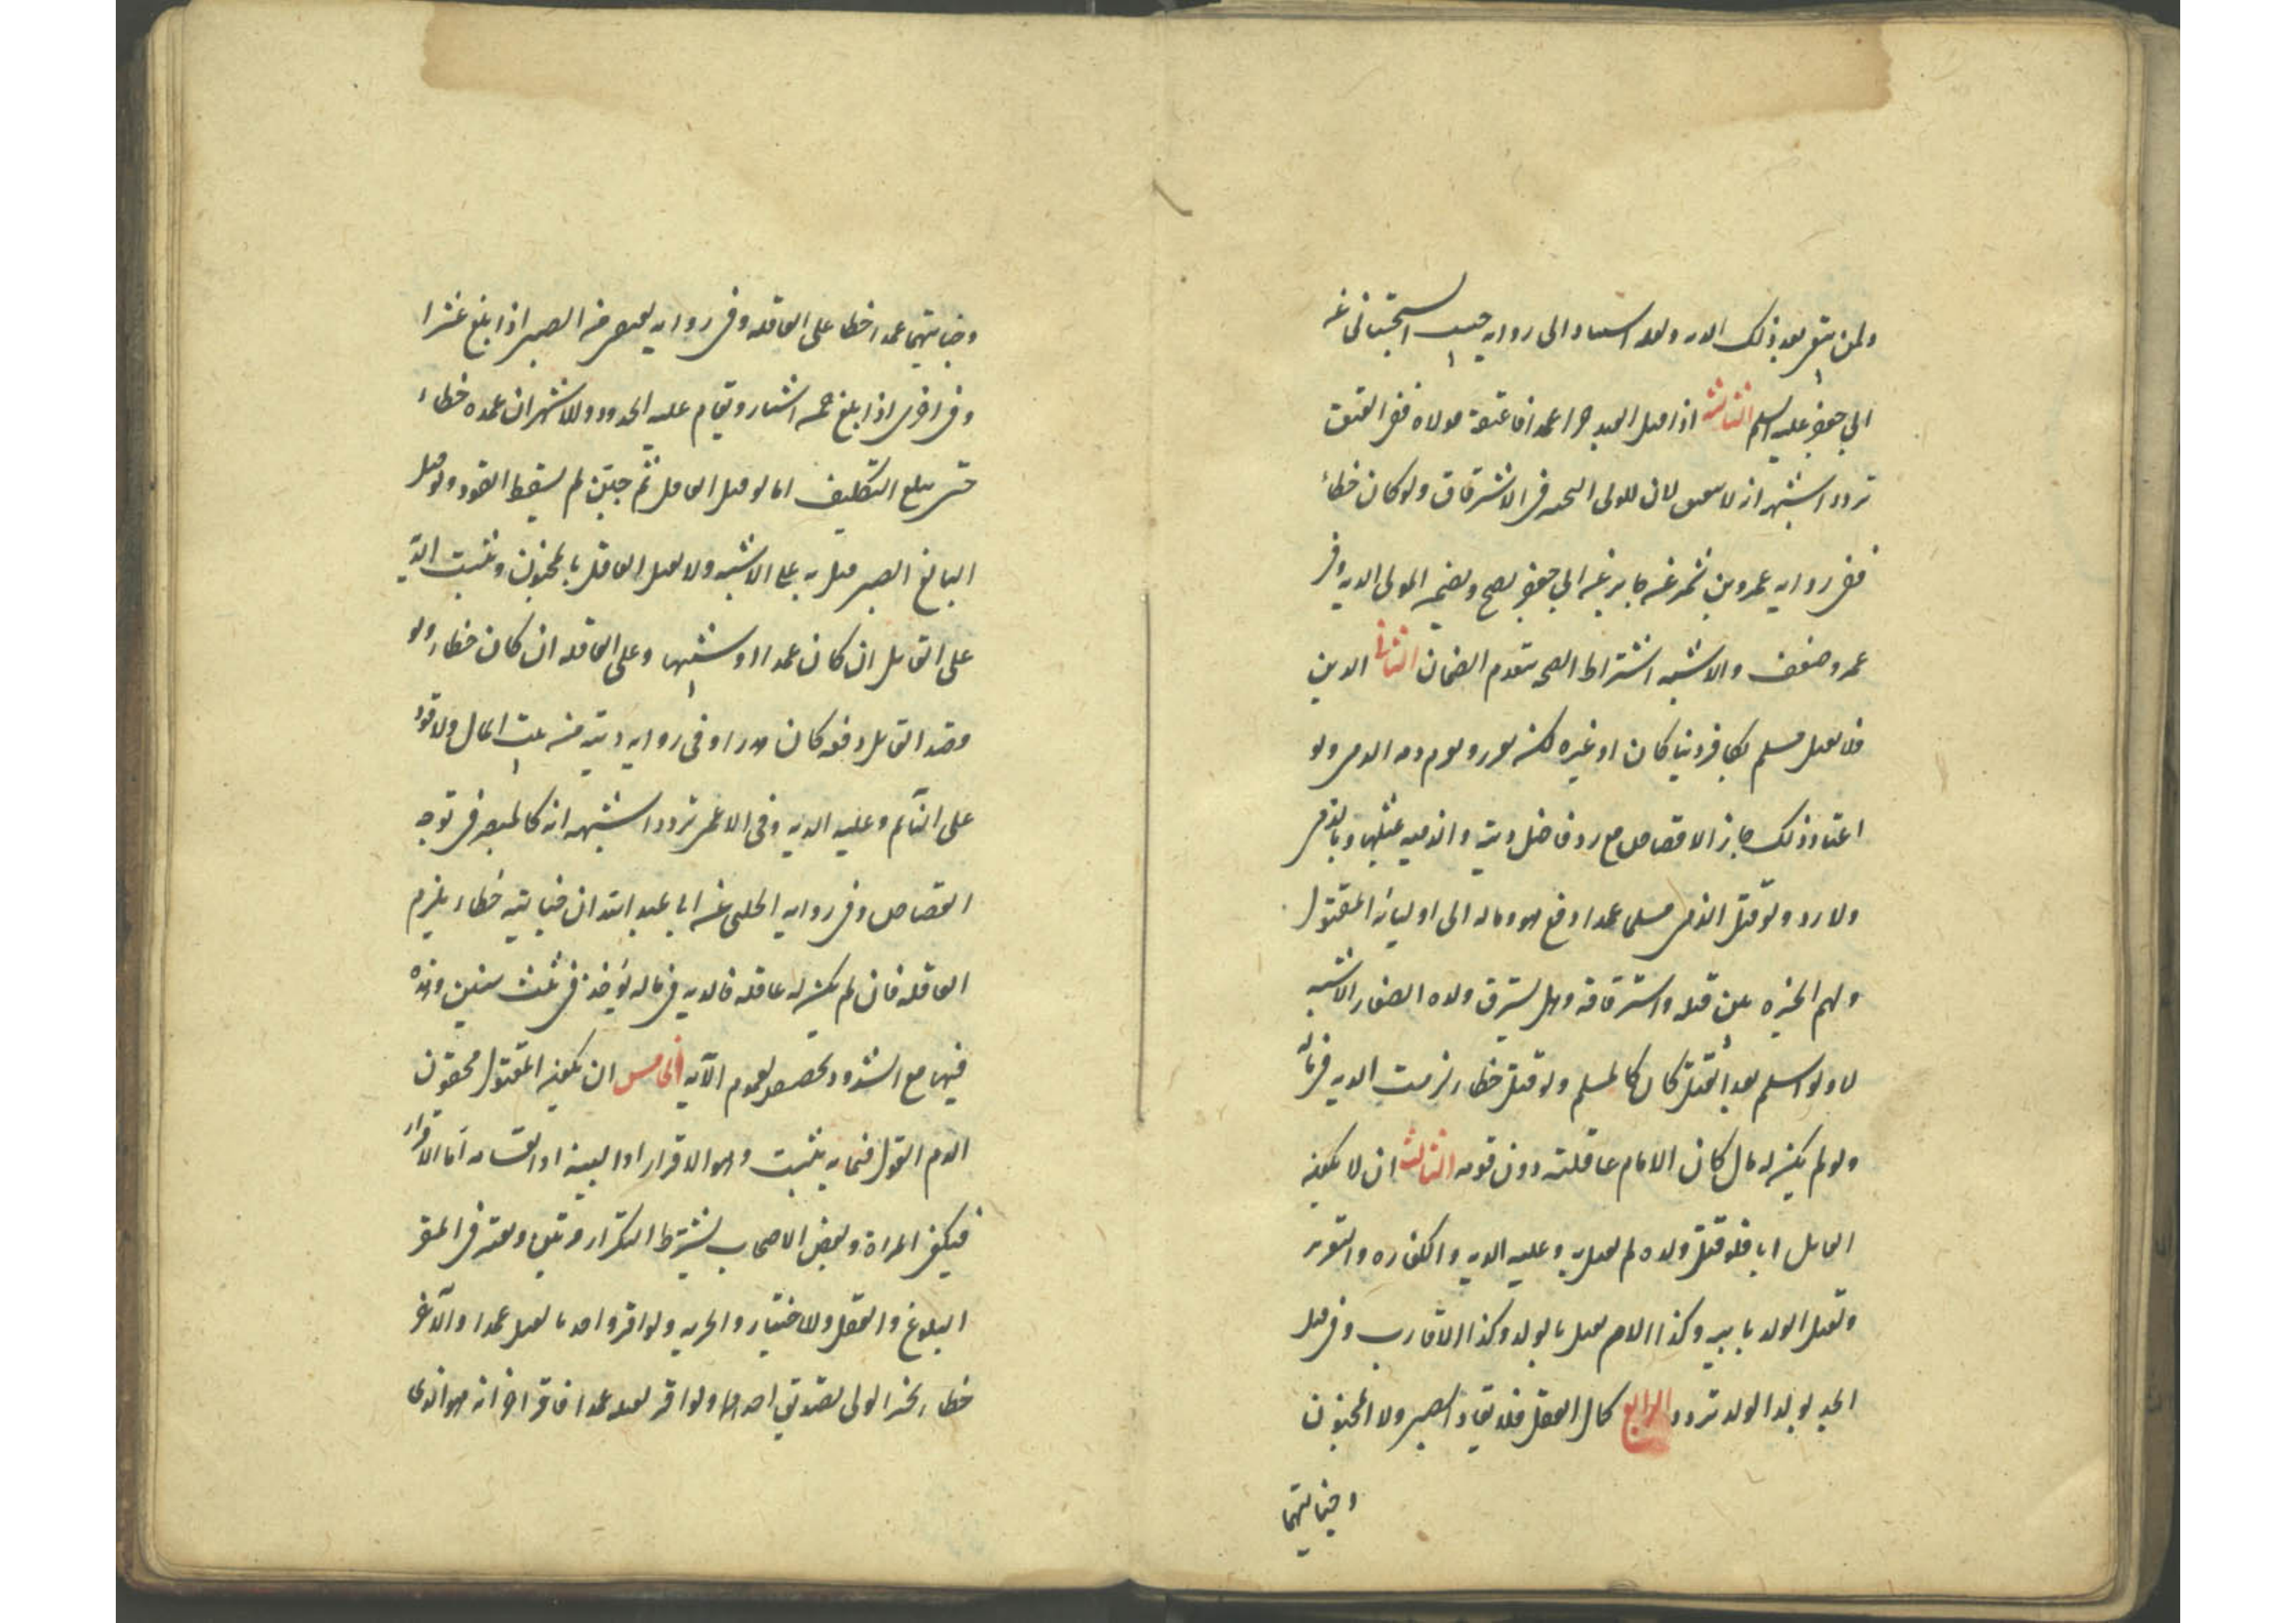 ولمن بقي بعد ذلك الدية ولعله استنادا الى رواية حبيب السجستاني عن
ابي جعفر عليه السلم الثالثة اذا قتل العبد حرا عمدا فاعتقه مولاه ففي العتق
تردد اشبهه انه لا ينعتق لان للولي التخيير في الاسترقاق ولو كان خطاء
ففي رواية عمرو بن شمر عن جابر عن ابي جعفر يصح ويضمن المولى الدية وفي
عمرو ضعف والاشبه اشتراط الصحة بتقدم الضمان الثاني الدين
فلا يقتل مسلم بكافر ذميا كان او غيره لكن يعزر ويغرم دية الذمي ولو
اعتاد ذلك جاز الاقتصاص مع رد فاضل ديته والذمية بمثلها وبالذمي
ولا رد ولو قتل الذمي مسلما عمدا دفع هو وماله الى اولياء المقتول
ولهم الخيرة بين قتله واسترقاقه وهل يسترق ولده الصغار الاشبه
لا ولو اسلم بعد القتل كان كالمسلم ولو قتل خطاء لزمت الدية في ماله
ولو لم يكن له مال كان الامام عاقلته دون قومه الثالث ان لا يكون
القاتل ابا فلو قتل ولده لم يقتل به وعليه الدية والكفارة والتعزير
ويقتل الولد بابيه وكذا الام يقتل بالولد وكذا الاقارب وفي قتل
الجد بولد الولد تردد الرابع كمال العقل فلا يقاد الصبي ولا المجنون
وجنايتهما
وجنايتهما عمدا خطا على العاقلة وفي رواية يقتص من الصبي اذا بلغ عشرا
وفي اخرى اذا بلغ خمسة اشبار ويقام عليه الحدود والاشهر ان عمده خطاء
حتى يبلغ التكليف اما لو قتل العاقل ثم جن لم يسقط القود ولو قتل
البالغ الصبي قتل به على الاشبه ولا يقتل العاقل بالمجنون وتثبت الدية
على القاتل ان كان عمدا او شبيها وعلى العاقلة ان كان خطاء ولو
قصد القاتل دفعه كان هدرا وفي رواية ديته من بيت المال ولا قود
على النائم وعليه الدية وفي الاعمى تردد اشبهه انه كالمبصر في توجه
القصاص وفي رواية الحلبي عن ابي عبد الله ان جنايته خطاء يلزم
العاقلة فان لم يكن له عاقلة فالدية في ماله يؤخذ في ثلث سنين وهذه
فيها مع الشذوذ تخصيص لعموم الآية الخامس ان يكون المقتول محقون
الدم القول فيما به يثبت وهو الاقرار او البينة او القسامة اما الاقرار
فيكفي المراة وبعض الاصحاب يشترط التكرار مرتين ويعتبر في المقر
البلوغ والعقل والاختيار والحرية ولو اقر واحد بالقتل عمدا والآخر
خطاء تخير الولي تصديق احدهما ولو اقر بقتله عمدا فاقر آخر انه هو الذي